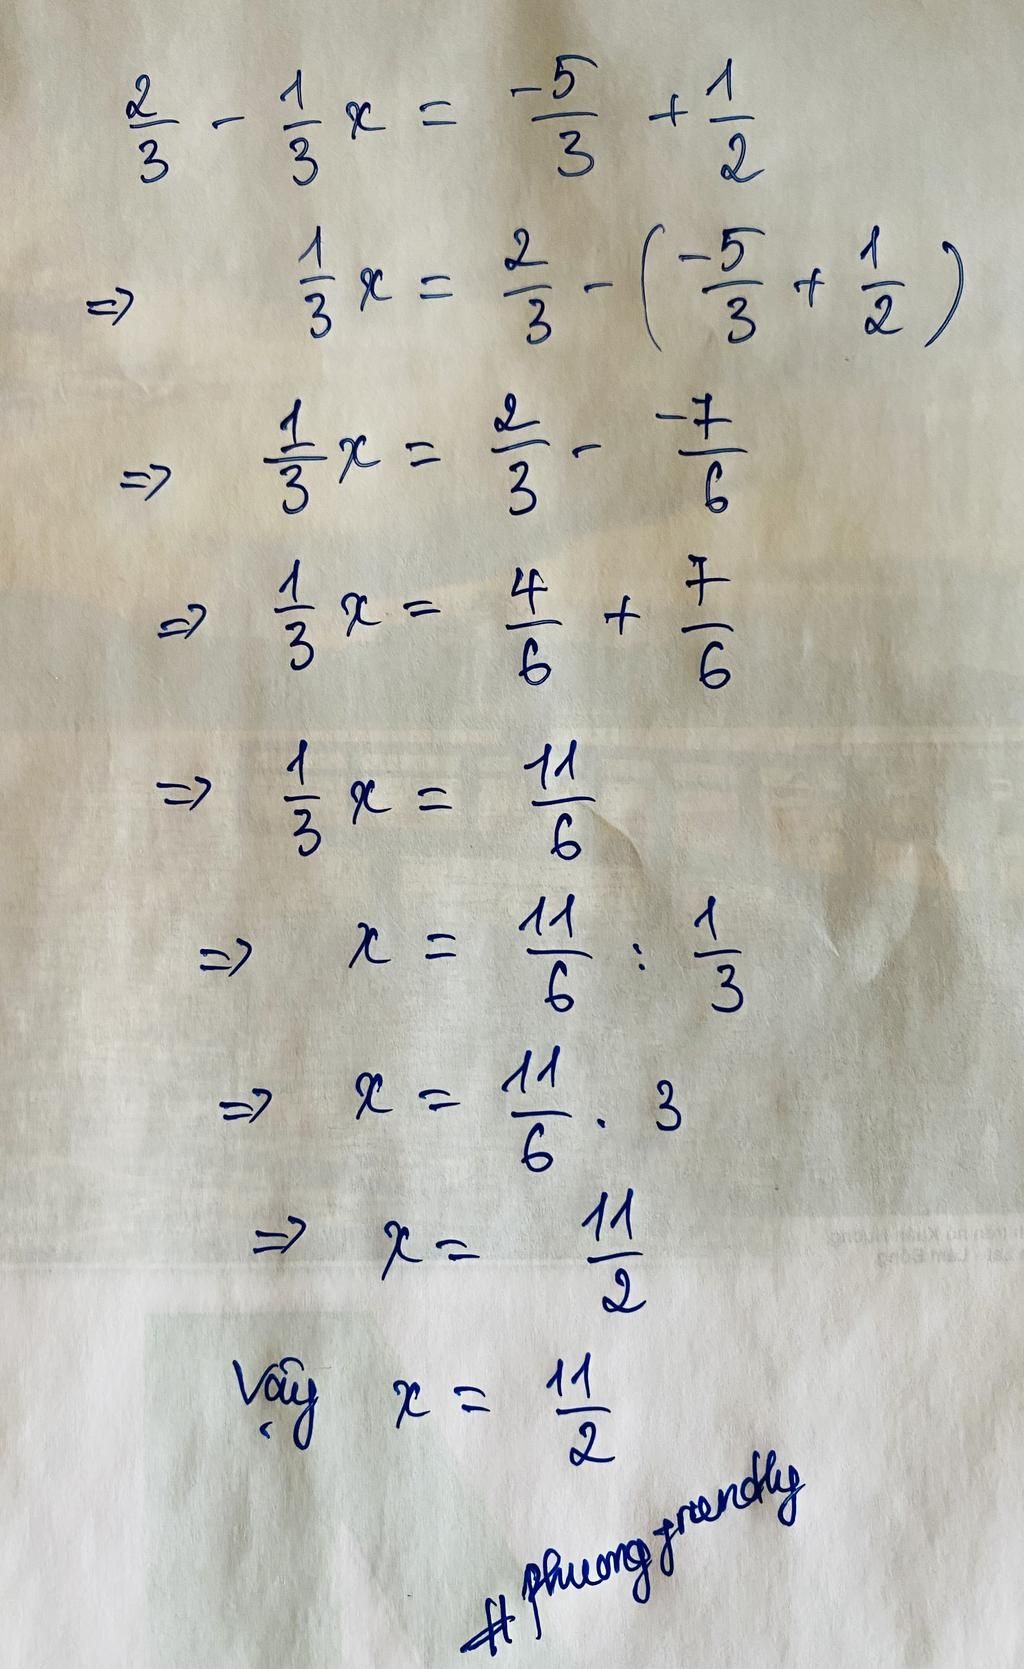 2/3 - 1/3 x = -5/3 + 1/2
=> 1/3 x = 2/3 - (-5/3 + 1/2)
=> 1/3 x = 2/3 - -7/6
=> 1/3 x = 4/6 + 7/6
=> 1/3 x = 11/6
=> x = 11/6 : 1/3
=> x = 11/6 . 3
=> x = 11/2
Vậy x = 11/2
# phuongfriendly